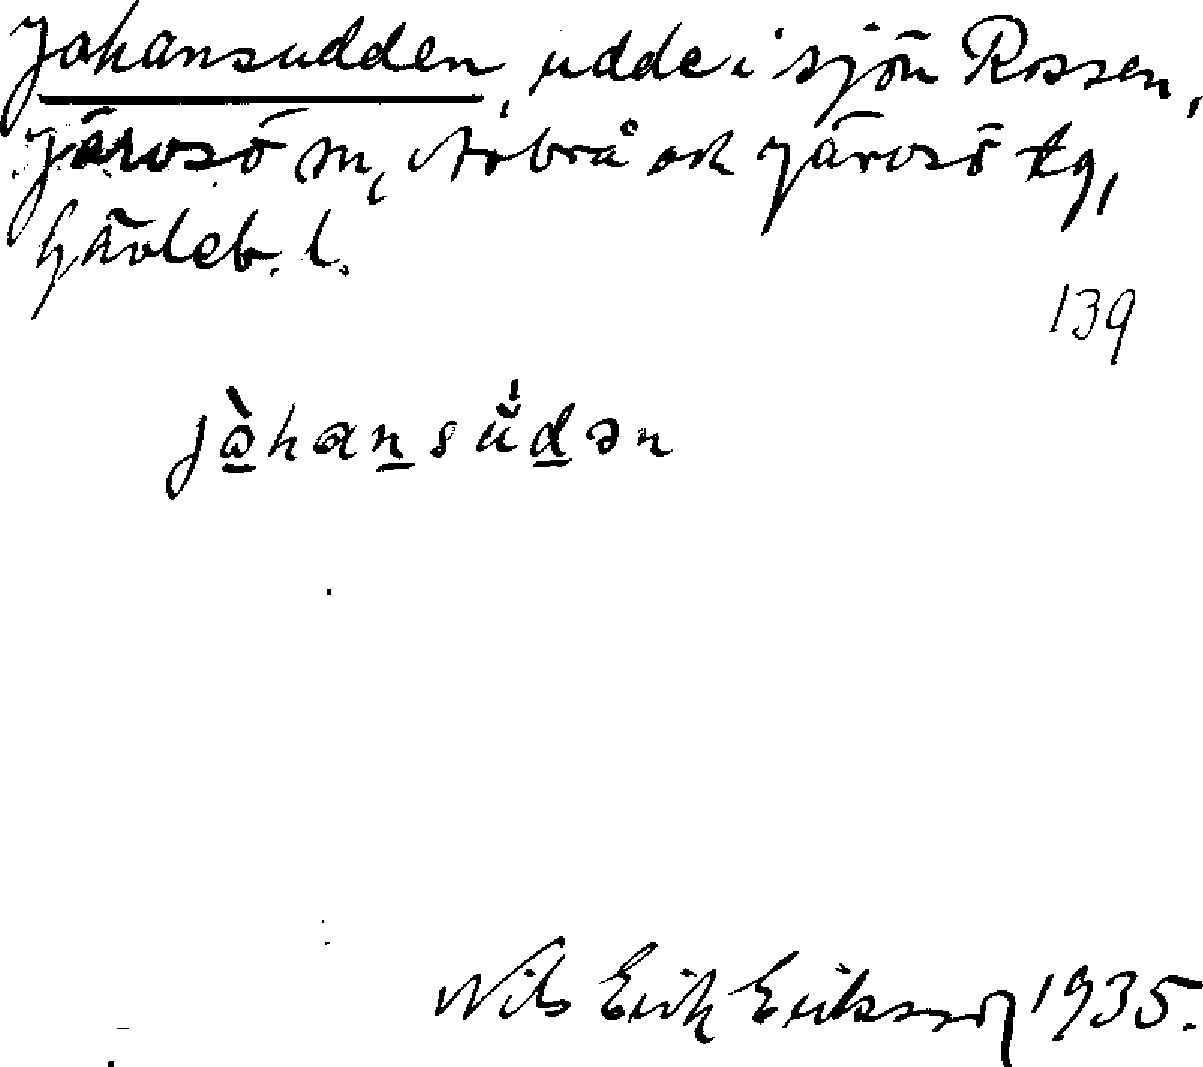 Johansudden, udde i sjön Rossen,
Järvsö sn, Arbrå och Järvsö tg,
Gävleb. l.
139
jɑ̀hansŭ́dən
Nils Erik Eriksson 1935.